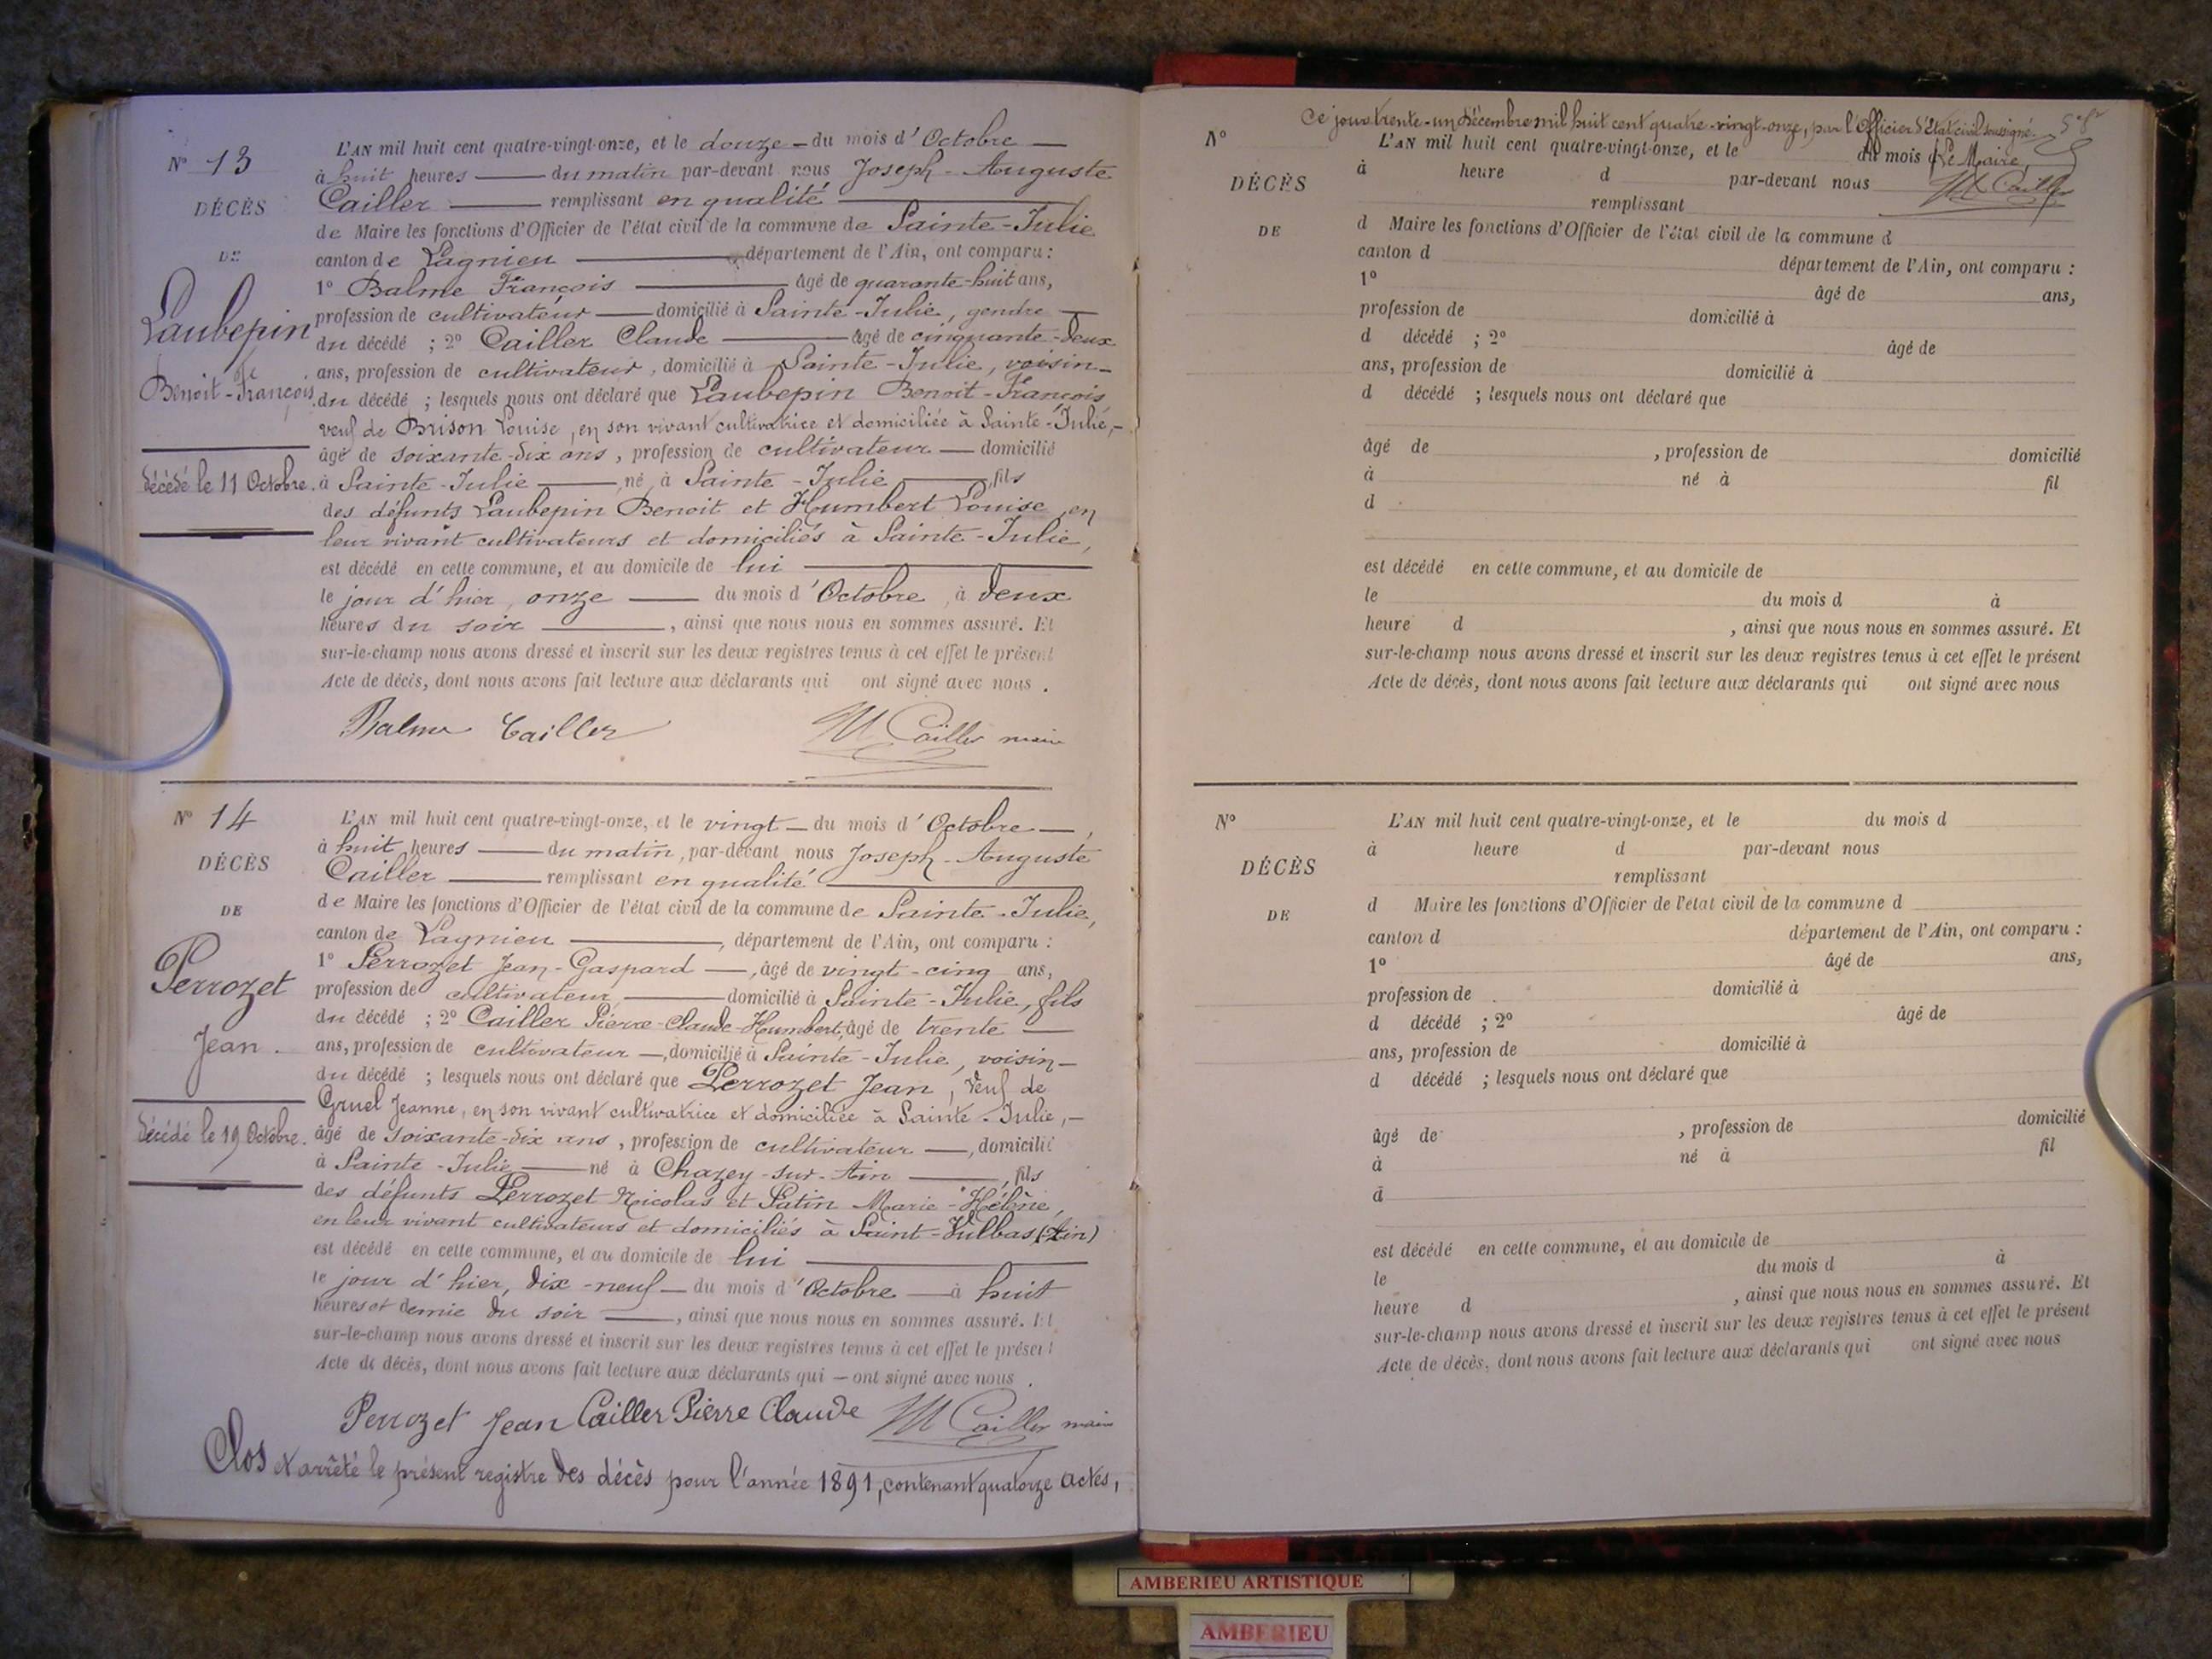 N° 13
DÉCÈS
DE
Laubepin
Benoit-François
décédé le 11 Octobre.
L'AN mil huit cent quatre-vingt-onze, et le douze du mois d'Octobre
à huit heures du matin par-devant nous Joseph-Auguste
Cailler remplissant en qualité
de Maire les fonctions d'Officier de l'état civil de la commune de Sainte-Julie
canton de Lagnieu département de l'Ain, ont comparu :
1° Balme François âgé de quarante-huit ans,
profession de cultivateur domicilié à Sainte-Julie, gendre
du décédé ; 2° Cailler Claude âgé de cinquante-deux
ans, profession de cultivateur, domicilié à Sainte-Julie, voisin
du décédé ; lesquels nous ont déclaré que Laubepin Benoit-François
veuf de Brison Louise, en son vivant cultivatrice et domiciliée à Sainte-Julie,
âgé de soixante-dix ans, profession de cultivateur domicilié
à Sainte-Julie né à Sainte-Julie, fils
des défunts Laubepin Benoit et Humbert Louise, en
leur vivant cultivateurs et domiciliés à Sainte-Julie,
est décédé en cette commune, et au domicile de lui
le jour d'hier, onze du mois d'Octobre, à deux
heures du soir, ainsi que nous nous en sommes assuré. Et
sur-le-champ nous avons dressé et inscrit sur les deux registres tenus à cet effet le présent
Acte de décès, dont nous avons fait lecture aux déclarants qui ont signé avec nous.
Balme Cailler Cailler maire
N° 14
DÉCÈS
DE
Perrozet
Jean.
décédé le 19 Octobre.
L'AN mil huit cent quatre-vingt-onze, et le vingt du mois d'Octobre,
à huit heures du matin, par-devant nous Joseph-Auguste
Cailler remplissant en qualité
de Maire les fonctions d'Officier de l'état civil de la commune de Sainte-Julie,
canton de Lagnieu, département de l'Ain, ont comparu :
1° Perrozet Jean-Gaspard, âgé de vingt-cinq ans,
profession de cultivateur domicilié à Sainte-Julie, fils
du décédé ; 2° Cailler Pierre-Claude-Humbert, âgé de trente
ans, profession de cultivateur, domicilié à Sainte-Julie, voisin
du décédé ; lesquels nous ont déclaré que Perrozet Jean, veuf de
Gruel Jeanne, en son vivant cultivatrice et domiciliée à Sainte-Julie,
âgé de soixante-dix ans, profession de cultivateur, domicilié
à Sainte-Julie né à Chazey-sur-Ain, fils
des défunts Perrozet Nicolas et Patin Marie-Hélène,
en leur vivant cultivateurs et domiciliés à Saint-Vulbas (Ain)
est décédé en cette commune, et au domicile de lui
le jour d'hier, dix-neuf du mois d'Octobre à huit
heures et demie du soir, ainsi que nous nous en sommes assuré. Et
sur-le-champ nous avons dressé et inscrit sur les deux registres tenus à cet effet le présent
Acte de décès, dont nous avons fait lecture aux déclarants qui ont signé avec nous.
Perrozet Jean Cailler Pierre Claude Cailler maire
Clos et arrêté le présent registre des décès pour l'année 1891, contenant quatorze actes,
Ce jour trente-un Décembre mil huit cent quatre-vingt-onze, par l'Officier d'Etat civil soussigné.
Le Maire,
Cailler
N°
DÉCÈS
DE
L'AN mil huit cent quatre-vingt-onze, et le du mois d
à heure d par-devant nous
remplissant
d Maire les fonctions d'Officier de l'état civil de la commune d
canton d département de l'Ain, ont comparu :
1° âgé de ans,
profession de domicilié à
d décédé ; 2° âgé de
ans, profession de domicilié à
d décédé ; lesquels nous ont déclaré que
âgé de , profession de domicilié
à né à fil
d
est décédé en cette commune, et au domicile de
le du mois d à
heure d , ainsi que nous nous en sommes assuré. Et
sur-le-champ nous avons dressé et inscrit sur les deux registres tenus à cet effet le présent
Acte de décès, dont nous avons fait lecture aux déclarants qui ont signé avec nous
N°
DÉCÈS
DE
L'AN mil huit cent quatre-vingt-onze, et le du mois d
à heure d par-devant nous
remplissant
d Maire les fonctions d'Officier de l'état civil de la commune d
canton d département de l'Ain, ont comparu :
1° âgé de ans,
profession de domicilié à
d décédé ; 2° âgé de
ans, profession de domicilié à
d décédé ; lesquels nous ont déclaré que
âgé de , profession de domicilié
à né à fil
d
est décédé en cette commune, et au domicile de
le du mois d à
heure d , ainsi que nous nous en sommes assuré. Et
sur-le-champ nous avons dressé et inscrit sur les deux registres tenus à cet effet le présent
Acte de décès, dont nous avons fait lecture aux déclarants qui ont signé avec nous
AMBERIEU ARTISTIQUE
AMBERIEU